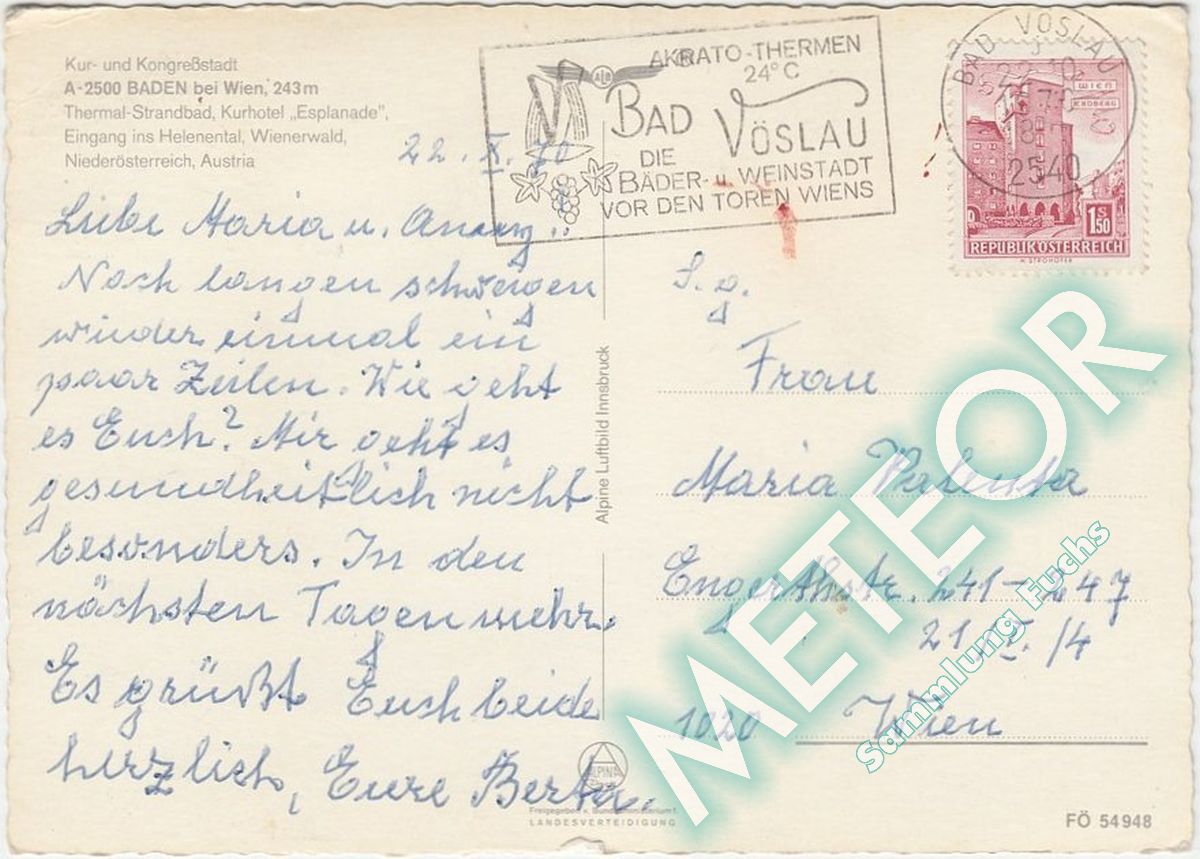 Kur- und Kongreßstadt
A-2500 BADEN bei Wien, 243 m
Thermal-Strandbad, Kurhotel „Esplanade",
Eingang ins Helenental, Wienerwald,
Niederösterreich, Austria
22. X. 70
Liebe Maria u.
Nach langen schweigen
wieder einmal ein
paar Zeilen. Wie geht
es Euch? Mir geht es
gesundheitlich nicht
besonders. In den
nächsten Tagen mehr.
Es grüßt Euch beide
herzlich, Eure Berta.
AKRATO-THERMEN
24° C
BAD VÖSLAU
DIE
BÄDER- u. WEINSTADT
VOR DEN TOREN WIENS
BAD VÖSLAU
22.10.
2540
WIEN
ERDBERG
S
1.50
REPUBLIK ÖSTERREICH
H. STROHOFER
S. g.
Frau
Maria Valenta
Engerthstr. 241-247
21 /4
1020 Wien
Alpine Luftbild Innsbruck
ALPINA
Freigegeben v. Bundesministerium f.
LANDESVERTEIDIGUNG
FÖ 54 948
METEOR
Sammlung Fuchs